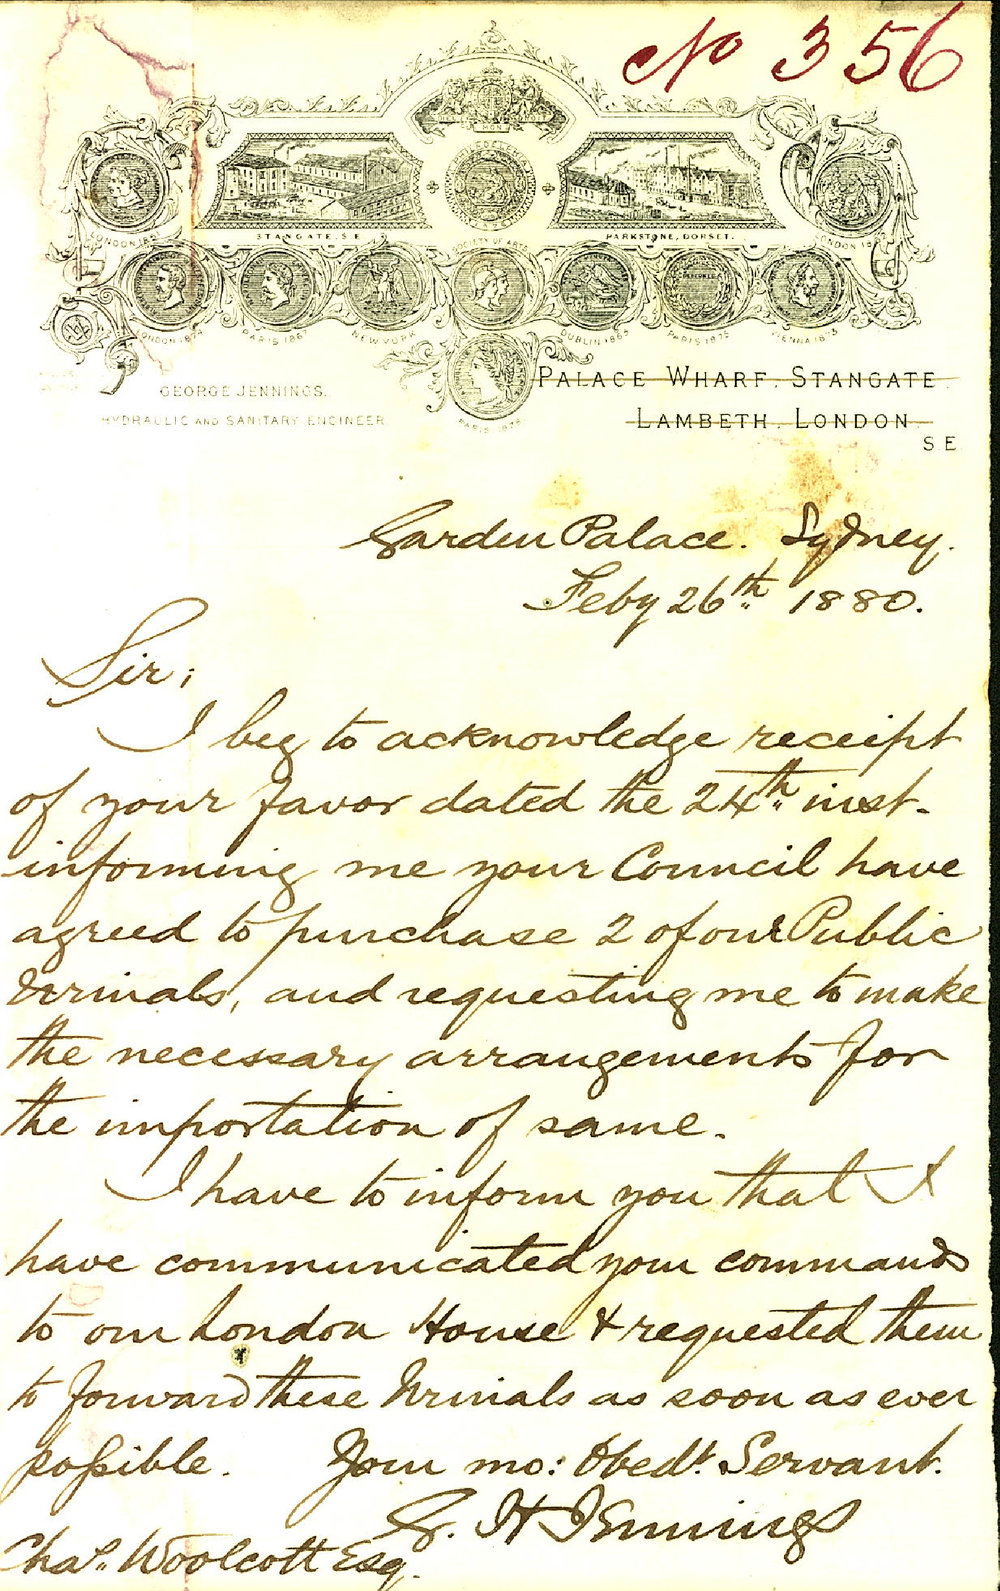 No 356
HON
STANGATE. S.E
PARKSTONE, DORSET.
LONDON 1851
SOCIETY OF ARTS
LONDON
LONDON 1874
PARIS 1867
NEW YORK
DUBLIN 1865
PARIS 1875
VIENNA 1873
PARIS 1878
GEORGE JENNINGS.
HYDRAULIC AND SANITARY ENGINEER
PALACE WHARF. STANGATE
LAMBETH. LONDON
S E
Garden Palace. Sydney.
Feby 26th 1880.
Sir;
I beg to acknowledge receipt
of your favor dated the 24th inst.
informing me your Council have
agreed to purchase 2 of our Public
Urinals, and requesting me to make
the necessary arrangements for
the importation of same.
I have to inform you that I
have communicated your commands
to our London House & requested them
to forward these Urinals as soon as ever
possible. Your mo: Obedt. Servant.
G. H Jennings
Chas. Woolcott Esq.